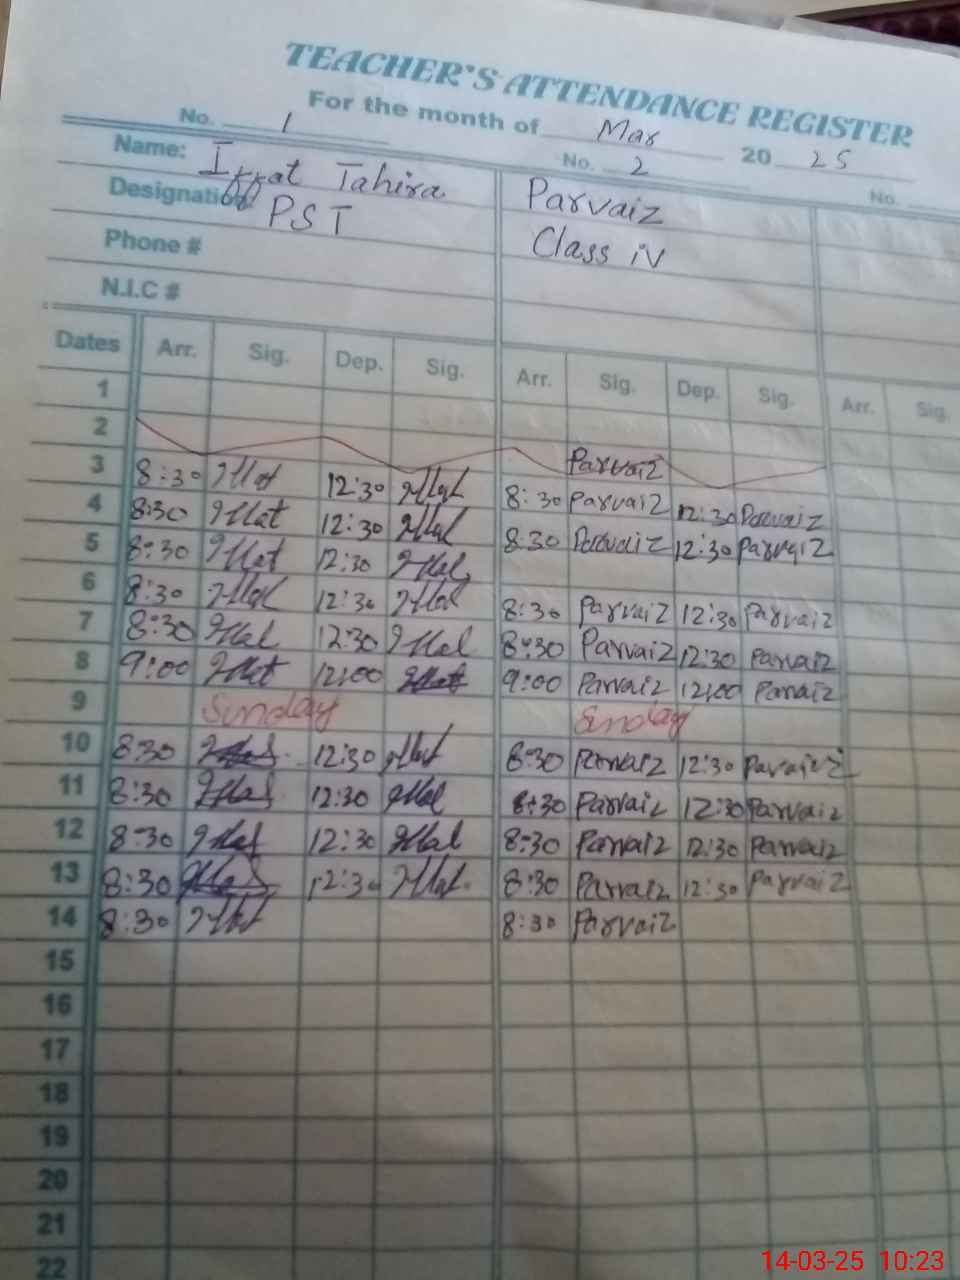 TEACHER'S ATTENDANCE REGISTER
For the month of Mar 20 25
No. 1 No. 2 No.
Name: Iffat Tahira Parvaiz
Designation PST Class iv
Phone #
N.I.C #
Dates Arr. Sig. Dep. Sig. Arr. Sig. Dep. Sig. Arr. Sig.
1
2
Parvaiz
3 8:30 12:30 8:30 Parvaiz 12:30 Parvaiz
4 8:30 12:30 8:30 Parvaiz 12:30 Parvaiz
5 8:30 12:30
6 8:30 12:30 8:30 Parvaiz 12:30 Parvaiz
7 8:30 12:30 8:30 Parvaiz 12:30 Parvaiz
8 9:00 12:00 9:00 Parvaiz 12:00 Parvaiz
9 Sunday Sunday
10 8:30 12:30 8:30 Parvaiz 12:30 Parvaiz
11 8:30 12:30 8:30 Parvaiz 12:30 Parvaiz
12 8:30 12:30 8:30 Parvaiz 12:30 Parvaiz
13 8:30 12:30 8:30 Parvaiz 12:30 Parvaiz
14 8:30 8:30 Parvaiz
15
16
17
18
19
20
21
22
14-03-25 10:23